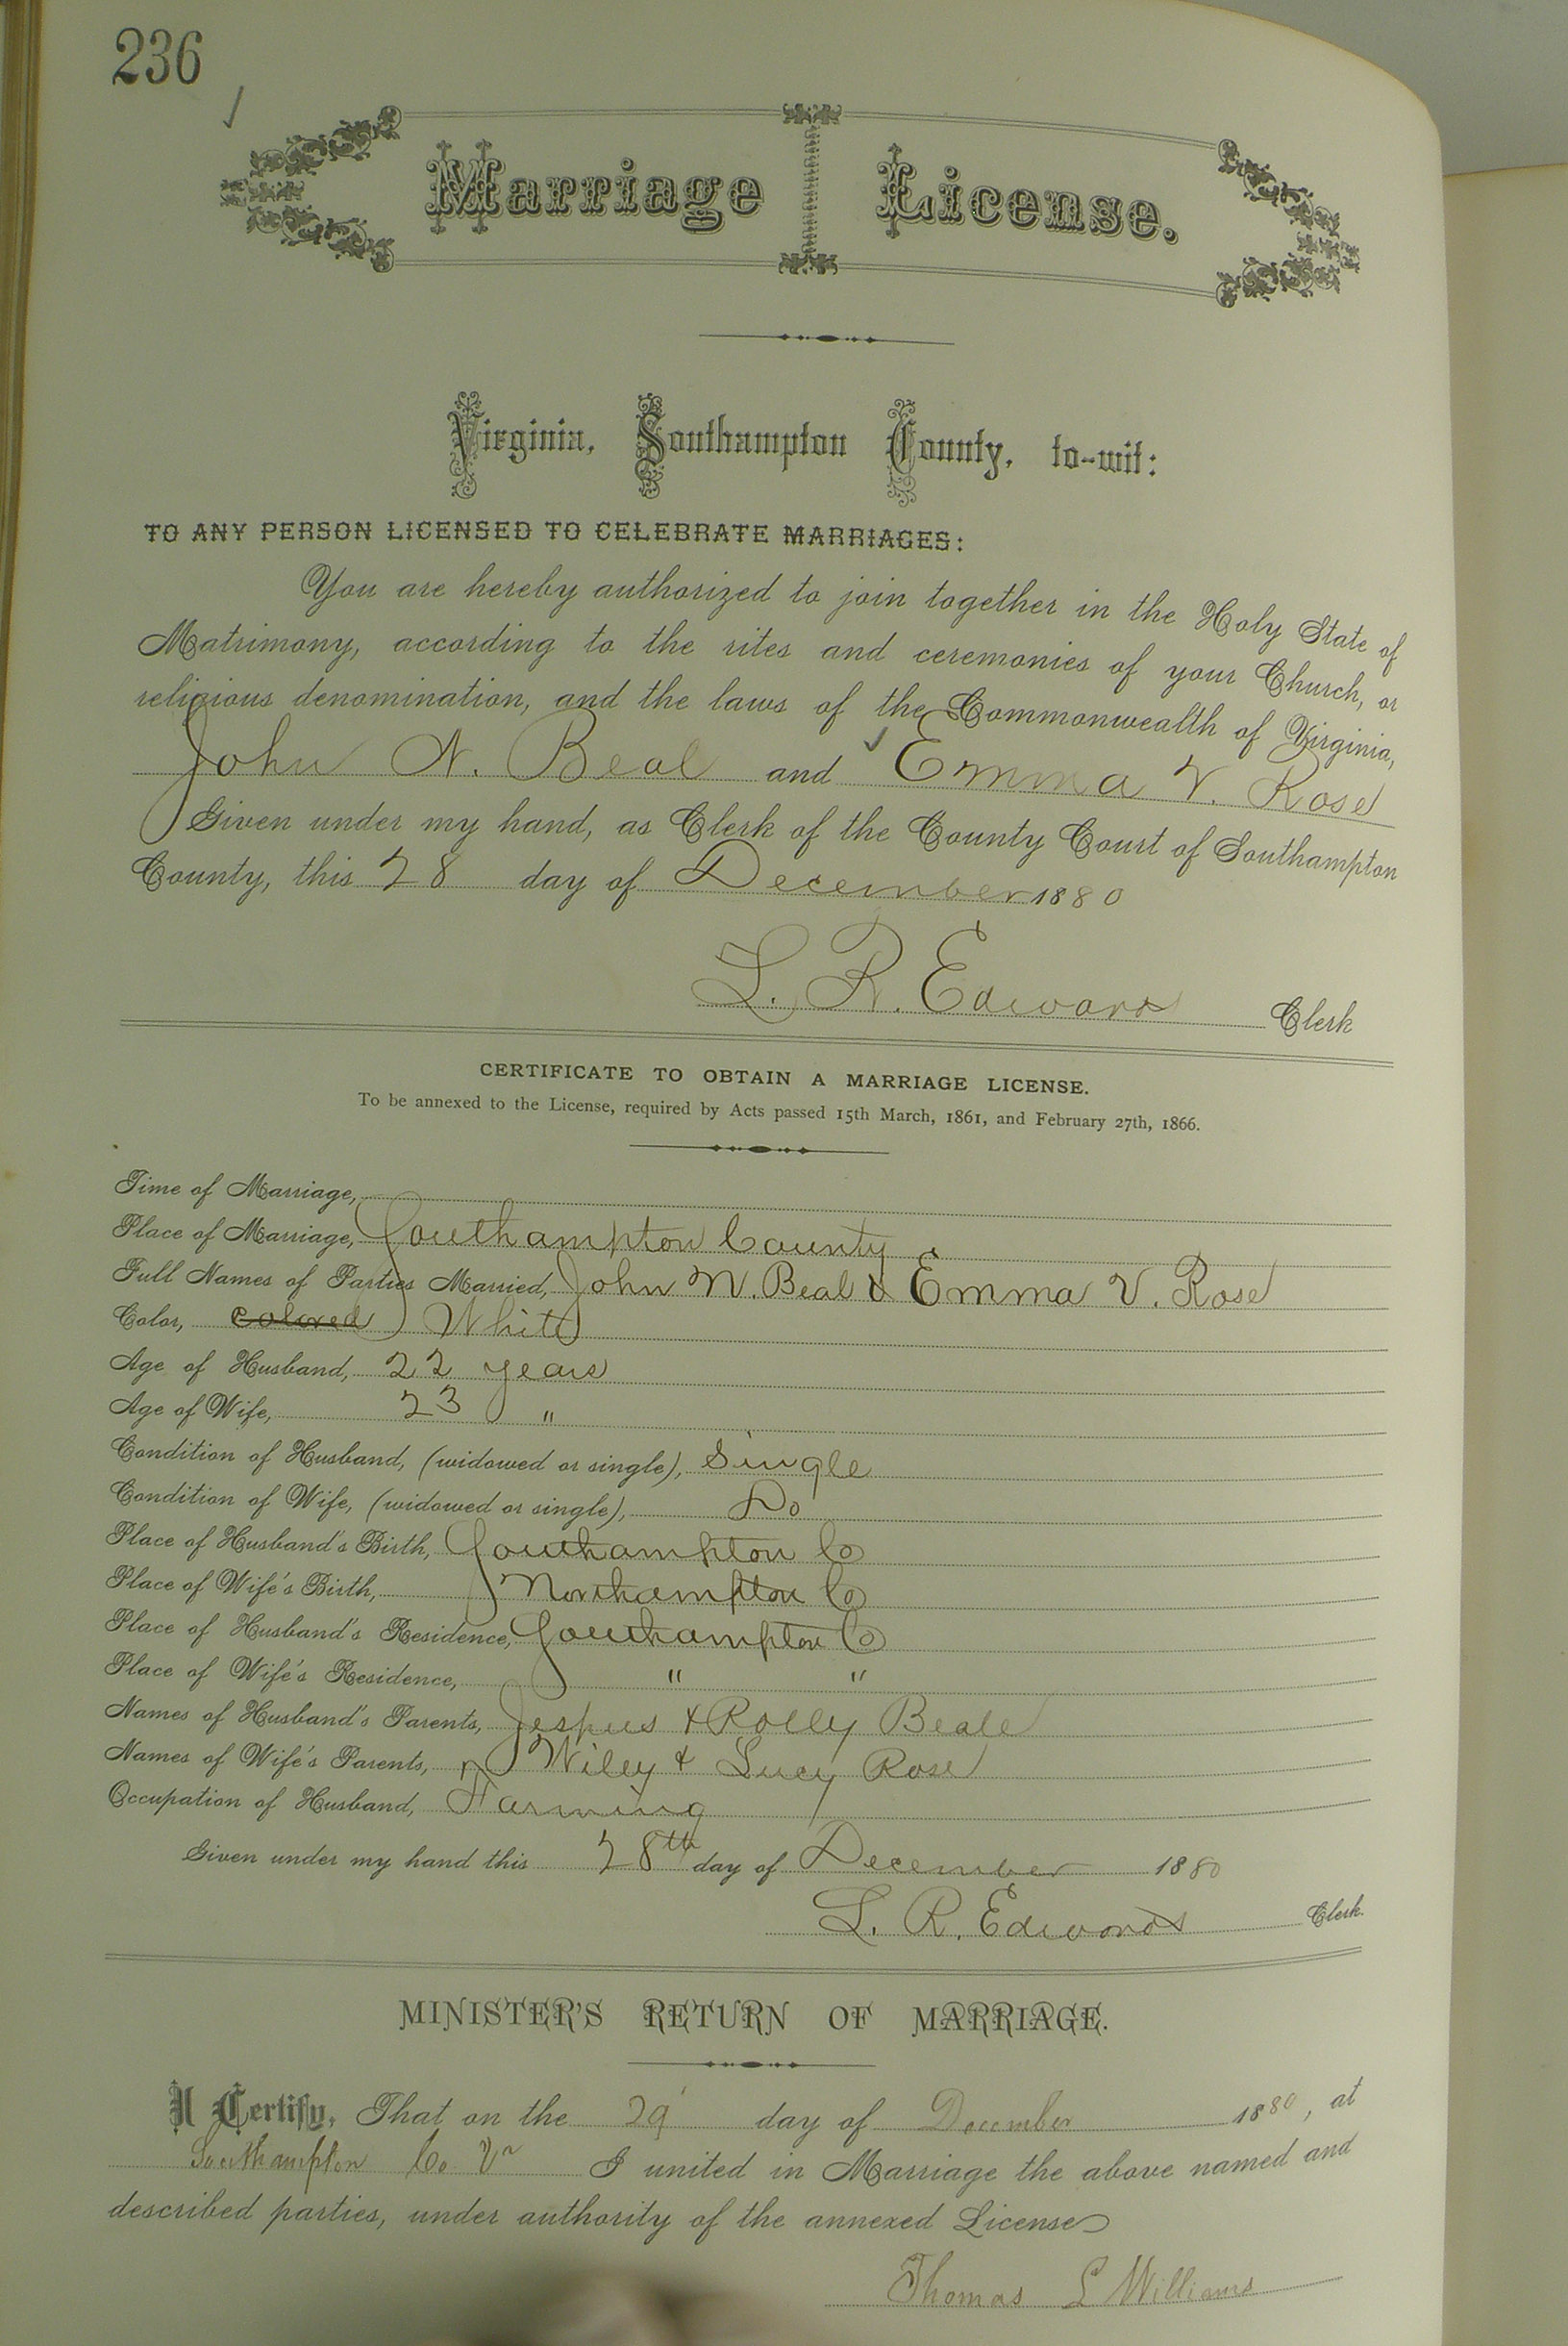 236
Marriage License.
Virginia, Southampton County, to-wit:
TO ANY PERSON LICENSED TO CELEBRATE MARRIAGES:
You are hereby authorized to join together in the Holy State of
Matrimony, according to the rites and ceremonies of your Church, or
religious denomination, and the laws of the Commonwealth of Virginia,
John N. Beal and Emma V. Rose
Given under my hand, as Clerk of the County Court of Southampton
County, this 28 day of December 1880
L. R. Edwards Clerk
CERTIFICATE TO OBTAIN A MARRIAGE LICENSE.
To be annexed to the License, required by Acts passed 15th March, 1861, and February 27th, 1866.
Time of Marriage,
Place of Marriage, Southampton County
Full Names of Parties Married, John N. Beal & Emma V. Rose
Color, colored White
Age of Husband, 22 years
Age of Wife, 23 "
Condition of Husband, (widowed or single), Single
Condition of Wife, (widowed or single), Do
Place of Husband's Birth, Southampton Co
Place of Wife's Birth, Northampton Co
Place of Husband's Residence, Southampton Co
Place of Wife's Residence, " "
Names of Husband's Parents, & Beale
Names of Wife's Parents, Wiley & Lucy Rose
Occupation of Husband, Farming
Given under my hand this 28th day of December 1880
L. R. Edwards Clerk.
MINISTER'S RETURN OF MARRIAGE.
I Certify, That on the 29 day of December 1880, at
Southampton Co. Va I united in Marriage the above named and
described parties, under authority of the annexed License
Thomas L Williams